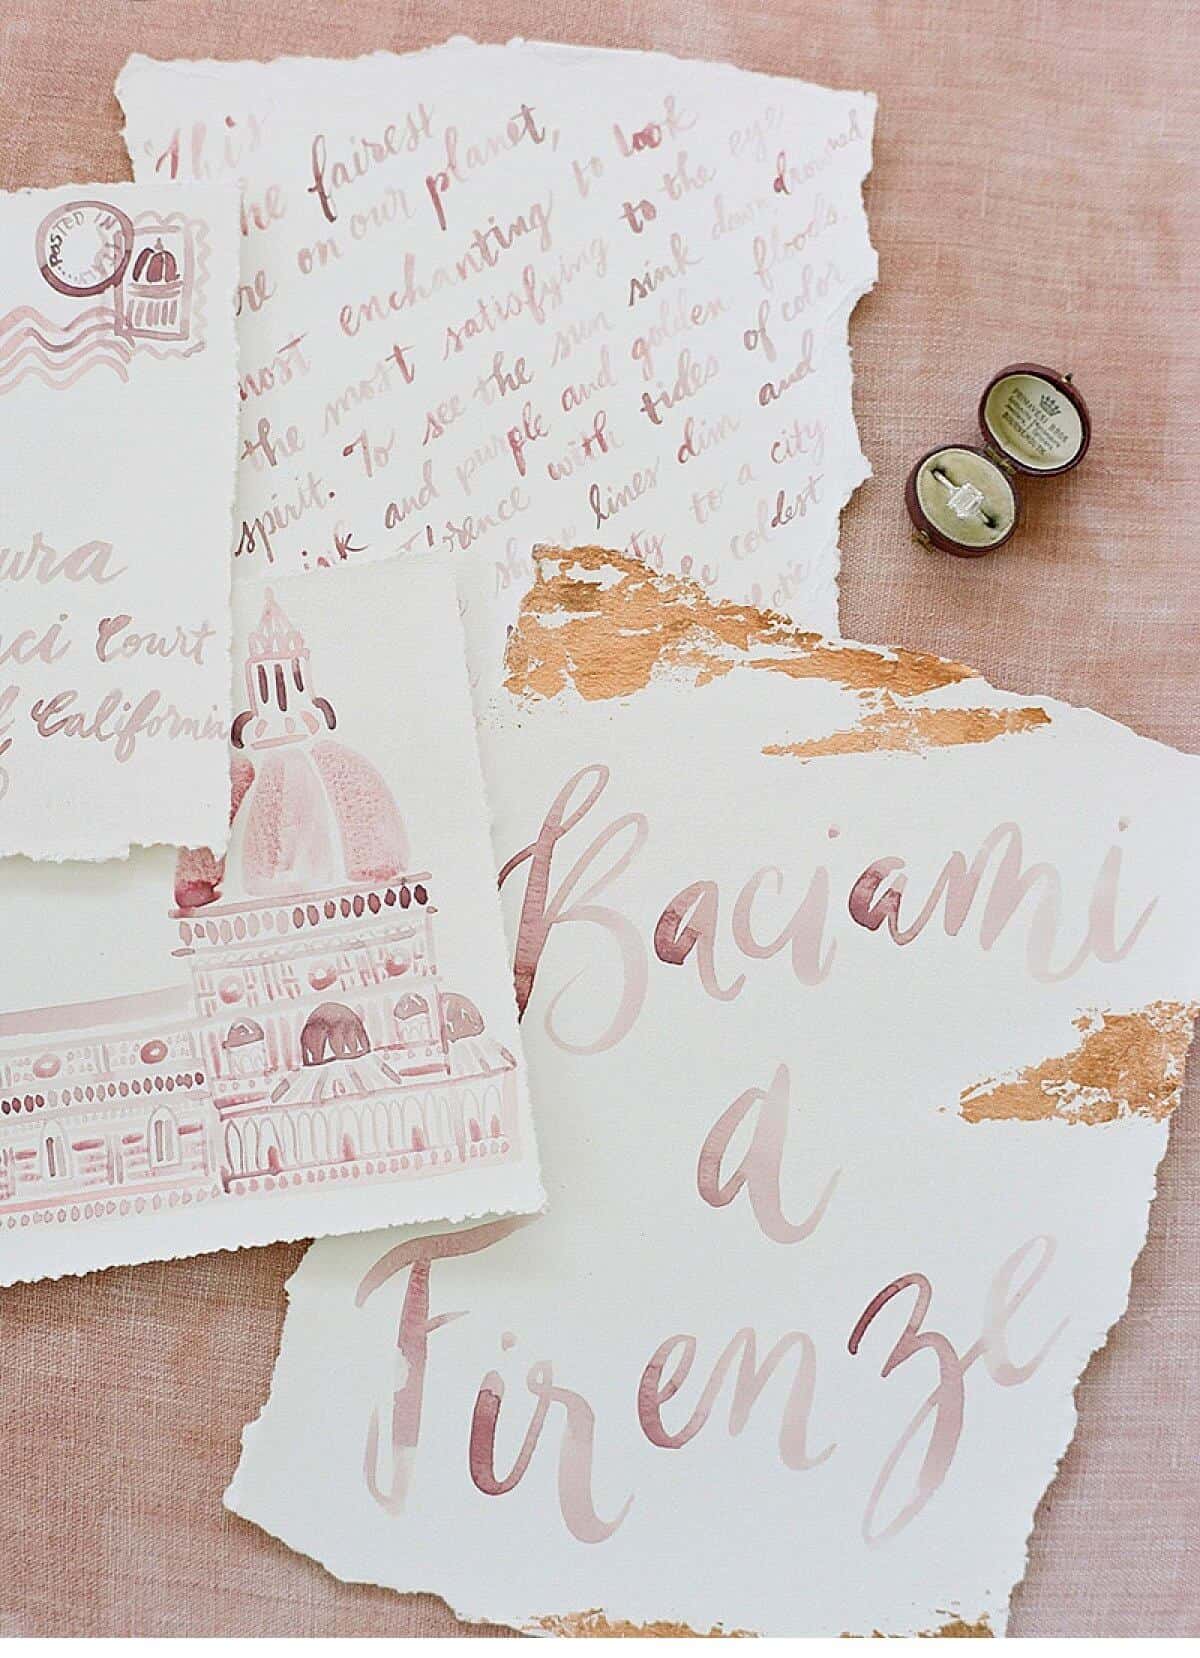 "This
he fairest
re on our planet,
most enchanting to look
the most satisfying to the eye
spirit. To see the sun sink down drowned
ink and purple and golden floods
rence with tides of color
lines dim and
ty to a city
coldest
POSTED IN
ura
ci Court
California
PRIMAVESI BROS
BOURNEMOUTH
Baciami
a
Firenze